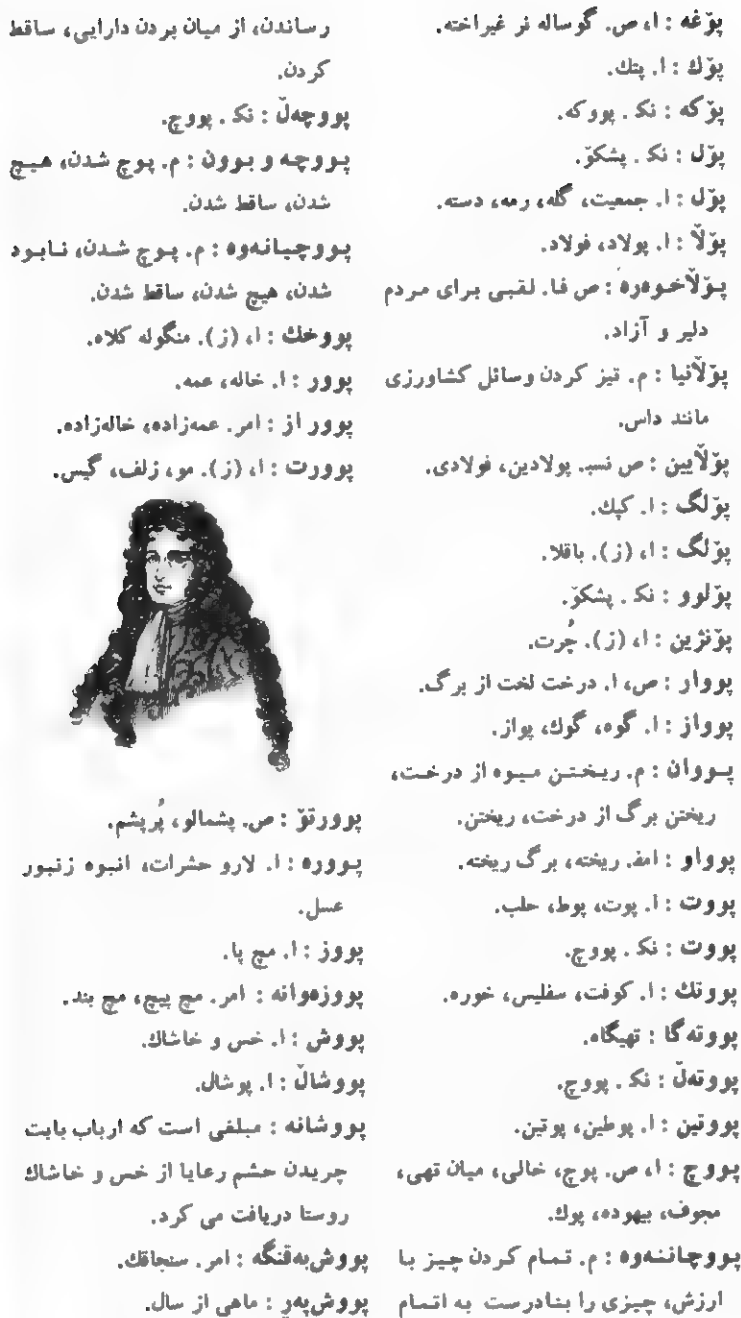 پۆغه : ا، ص. گوساله نر غیراخته.
پۆك : ا. پتك.
پۆكه : نکـ . پووكه.
پۆل : نکـ . پشكۆ.
پۆل : ا. جمعیت، گله، رمه، دسته.
پۆڵا : ا. پولاد، فولاد.
پـۆڵاخـوەرە : ص فا. لقبی برای مردم
دلیر و آزاد.
پۆڵانیا : م. تیز کردن وسائل کشاورزی
مانند داس.
پۆڵایین : ص نسبـ. پولادین، فولادی.
پۆلگ : ا. کپك.
پۆلگ : ا، (ز). باقلا.
پۆلوو : نکـ . پشكۆ.
پۆنژین : ا، (ز). چُرت.
پووار : ص، ا. درخت لخت از برگ.
پوواز : ا. گوه، گوك، پواز.
پـووان : م. ریـخـتـن مـیـوه از درخـت،
ریختن برگ از درخت، ریختن.
پوواو : امفـ. ریخته، برگ ریخته.
پووت : ا. پوت، پوط، حلب.
پووت : نکـ . پووچ.
پووتك : ا. کوفت، سفلیس، خوره.
پووته‌گا : تهیگاه.
پووته‌ڵ : نکـ . پووچ.
پووتین : ا. پوطین، پوتین.
پـووچ : ا، ص. پوچ، خالی، میان تهی،
مجوف، بیهوده، پوك.
پـووچانـنـەوە : م. تـمـام کـردن چـیـز بـا
ارزش، چیزی را بنادرست به اتـمـام
رساندن، از میان بردن دارایی، ساقط
کردن.
پووچه‌ڵ : نکـ . پووچ.
پـووچـه و بـوون : م. پـوچ شدن، هـیـچ
شدن، ساقط شدن.
پـووچـیـانـه‌وه : م. پـوچ شـدن، نـابـود
شدن، هیچ شدن، ساقط شدن.
پووخك : ا، (ز). منگوله کلاه.
پوور : ا. خاله، عمه.
پوور از : امر. عمه‌زاده، خاله‌زاده.
پوورت : ا، (ز). مو، زلف، گیس.
پوورتۆ : ص. پشمالو، پُرپشم.
پـووره : ا. لارو حشرات، انبوه زنبور
عسل.
پووز : ا. مچ پا.
پووزه‌وانه : امر. مچ پیچ، مچ بند.
پووش : ا. خس و خاشاك.
پووشاڵ : ا. پوشال.
پووشانه : مبلغی است که ارباب بابت
چریدن حشم رعایا از خس و خاشاك
روستا دریافت می کرد.
پووش‌به‌قنگه : امر. سنجاقك.
پووش‌په‌ڕ : ماهی از سال.